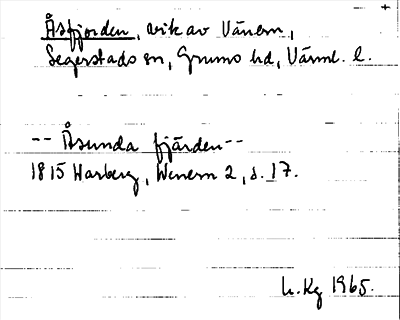 Åsfjorden, vik av Vänern,
Segerstads sn, Grums hd, Värml. l.
-- Åsunda fjärden --
1815 Hasberg, Wenern 2, s. 17.
L. Kg 1965.